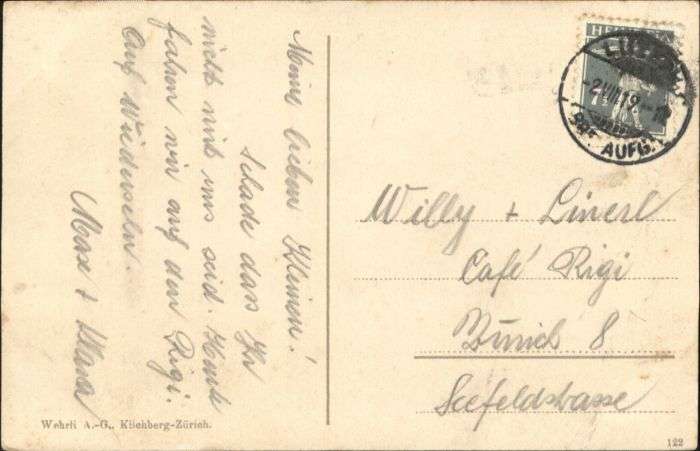 Meine lieben Kleinen!
Schade dass Ihr
nicht mit uns seid. Heute
fahren wir auf den Rigi.
Auf Wiedersehn.
Max + Klara
HELVETIA
7½
LUZERN
-2.VIII.19.
AUFG.
Willy + Linerl
Café Rigi
Zürich 8
Seefeldstrasse
Wehrli A.-G., Kilchberg-Zürich.
122